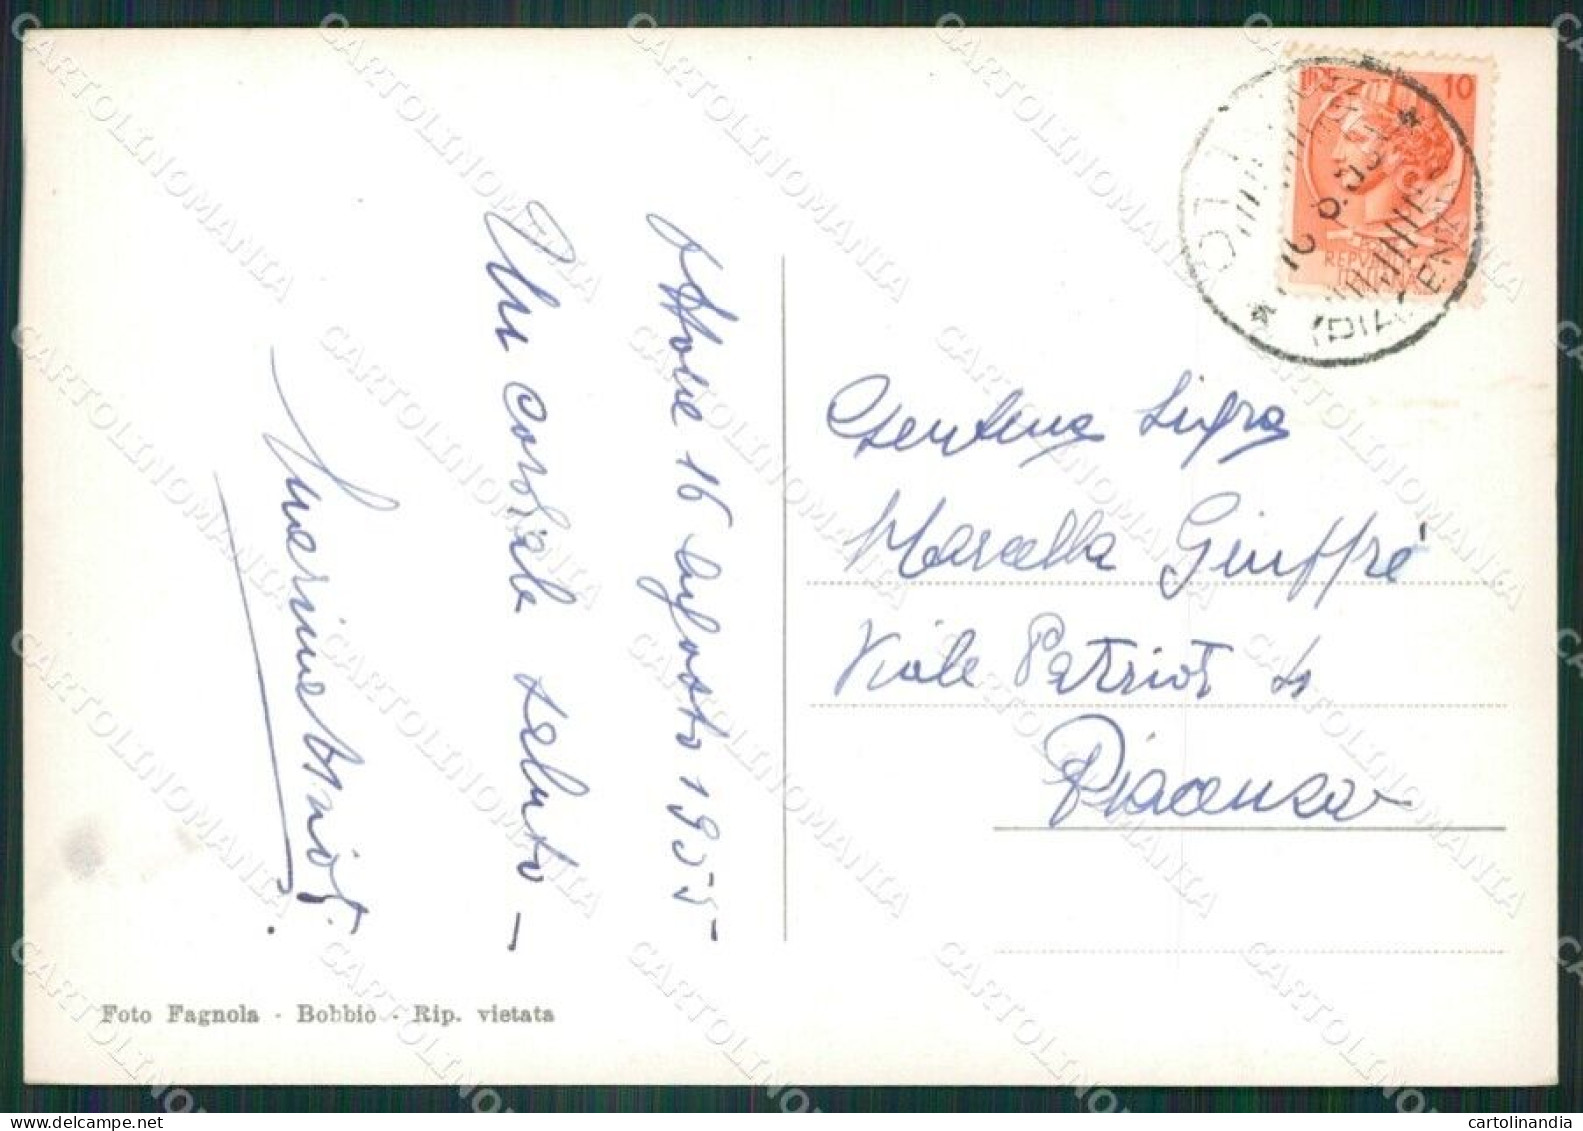 Ottone 16 Agosto 1955
Un cordiale saluto -
Gentma Sigra
Marcella Giuffré
Viale Patrioti
Piacenza
10
REPVBBLICA
ITALIANA
OTTONE
(PIACENZA)
16.8.55
Foto Fagnola - Bobbio - Rip. vietata
CARTOLINOMANIA
cartolinandia